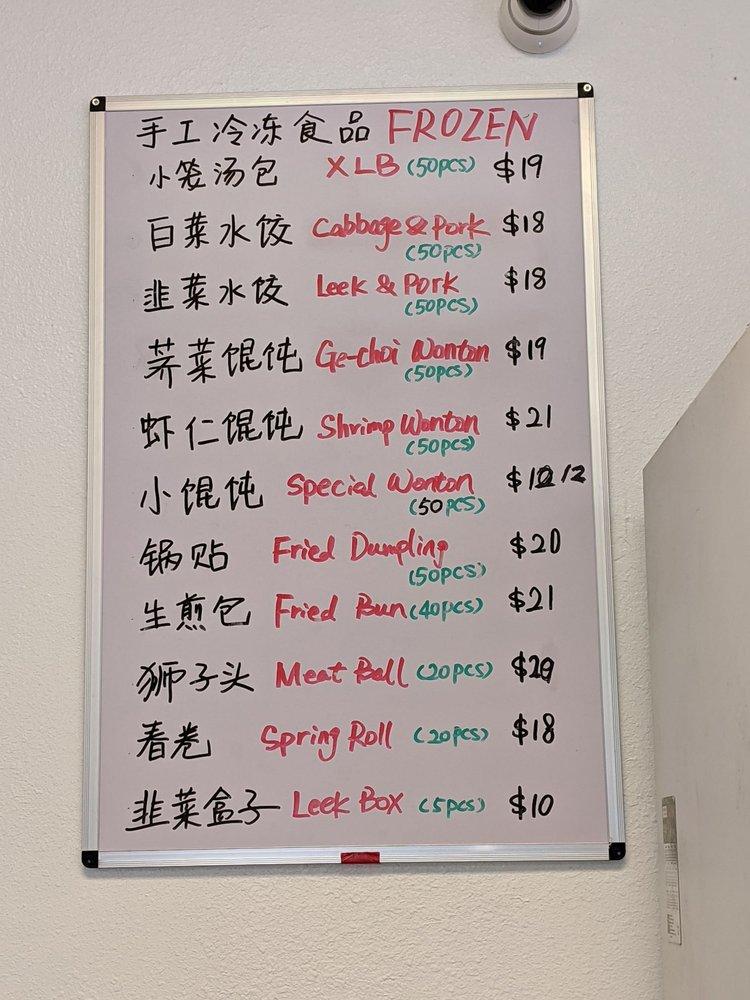 手工冷冻食品 FROZEN
小笼汤包 XLB (50pcs) $19
白菜水饺 Cabbage & Pork $18
(50pcs)
韭菜水饺 Leek & Pork $18
(50pcs)
荠菜馄饨 Ge-choi Wonton $19
(50pcs)
虾仁馄饨 Shrimp Wonton $21
(50pcs)
小馄饨 Special Wonton 12
(50pcs)
锅贴 Fried Dumpling $20
(50pcs)
生煎包 Fried Bun (40pcs) $21
狮子头 Meat Ball (20pcs)
春卷 Spring Roll (20pcs) $18
韭菜盒子 Leek Box (5pcs) $10